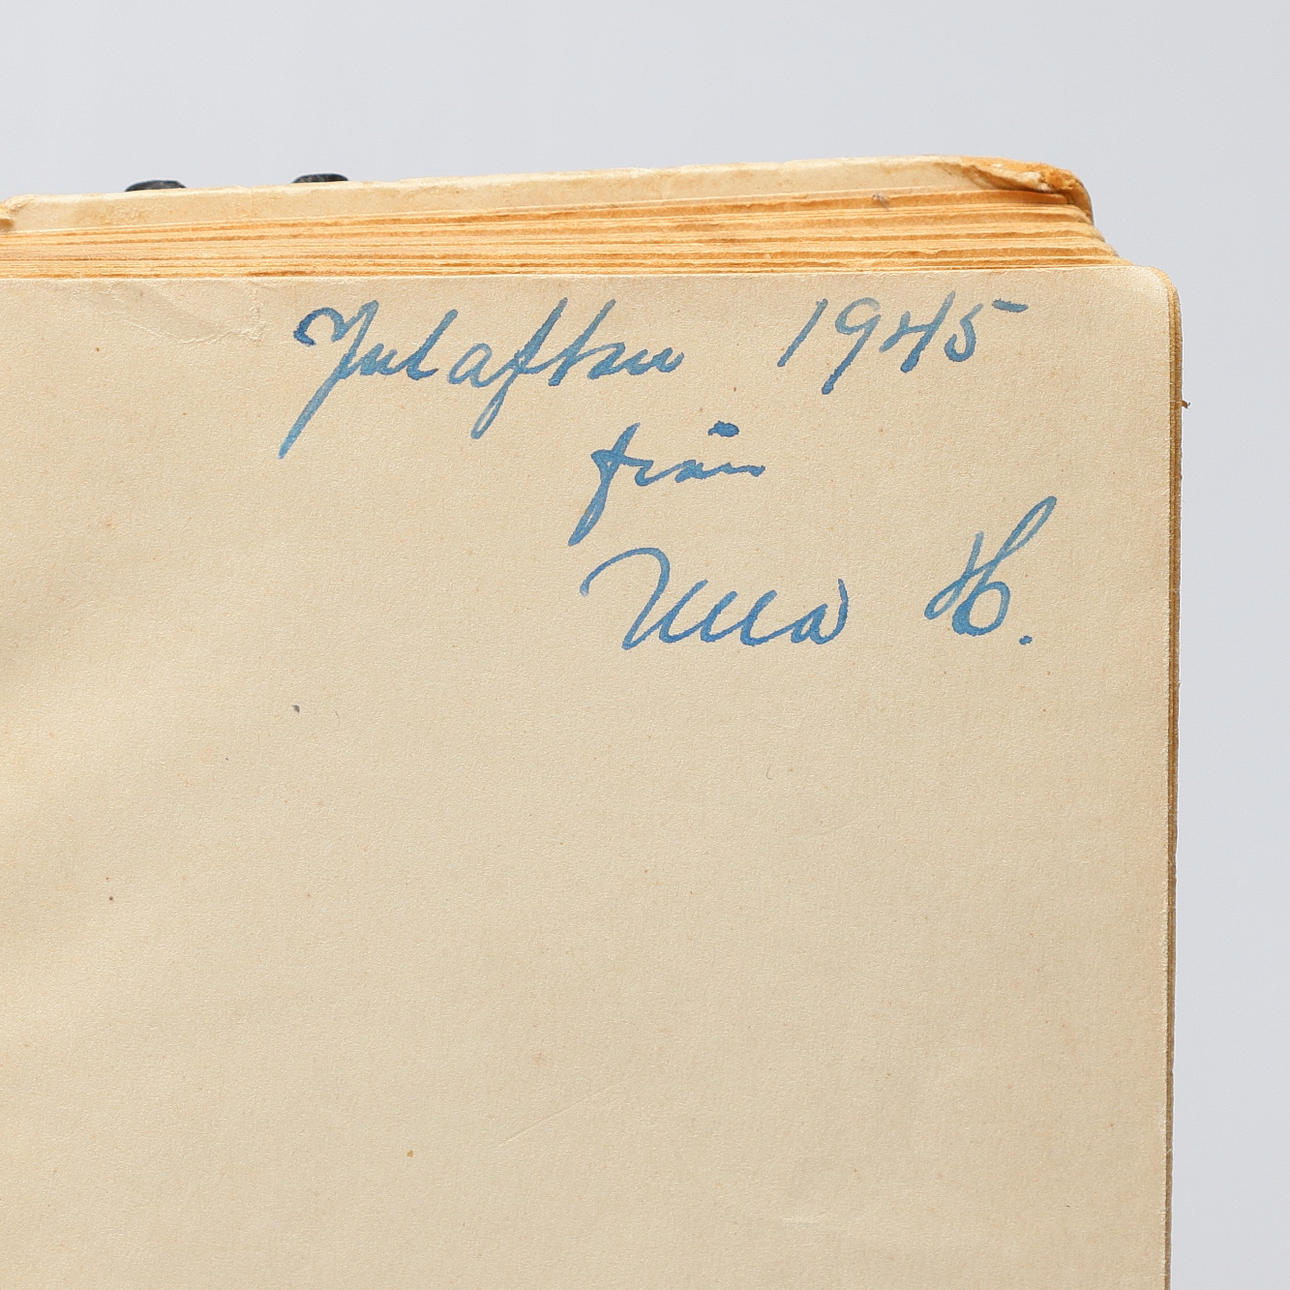 Julafton 1945
från
Ulla H.